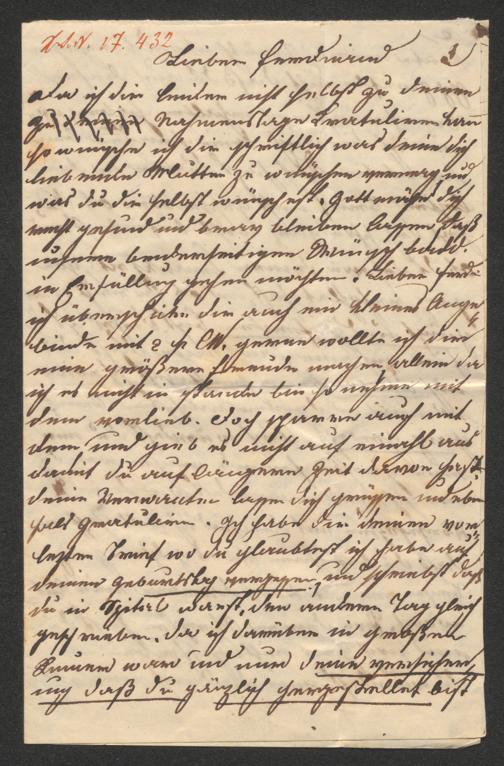 I.N. 17.432
Lieber Ferdinand 1
Da ich dir leider nicht selbst zu deinem
Nahmenstage Gratulieren kan
so wünsche ich dir schriftlich was deine dich
liebende Mutter zu wünschen vermag und
was du dir selbst wünschest. Gott möge dich
recht gesund und brav bleiben lassen daß
unsere beiderseitigen Wünsche bald
in Erfüllung gehen möchten. Lieber Ferdi
ich überschicke dir auch ein kleines Ange
binde mit 2 f CM. gerne wollte ich dir
eine größere Freude machen allein da
ich es nicht im stande bin so nehme mit
dem vorlieb. Doch sparre auch mit
dem und gieb es nicht auf einmahl aus
damit du auf längere Zeit davon hast
deine Verwandten lassen dich grüßen und eben
fals Gratulieren. Ich habe dir deinen vor
lezten Brief wo du glaubtest ich habe auf
deinen Geburtstag vergessen, und schriebst daß
du in Spital warst, den anderen Tag gleich
geschrieben. da ich darüber in großen
Kummer war und nun deine versicher
ung daß du gänzlich hergestellet bist